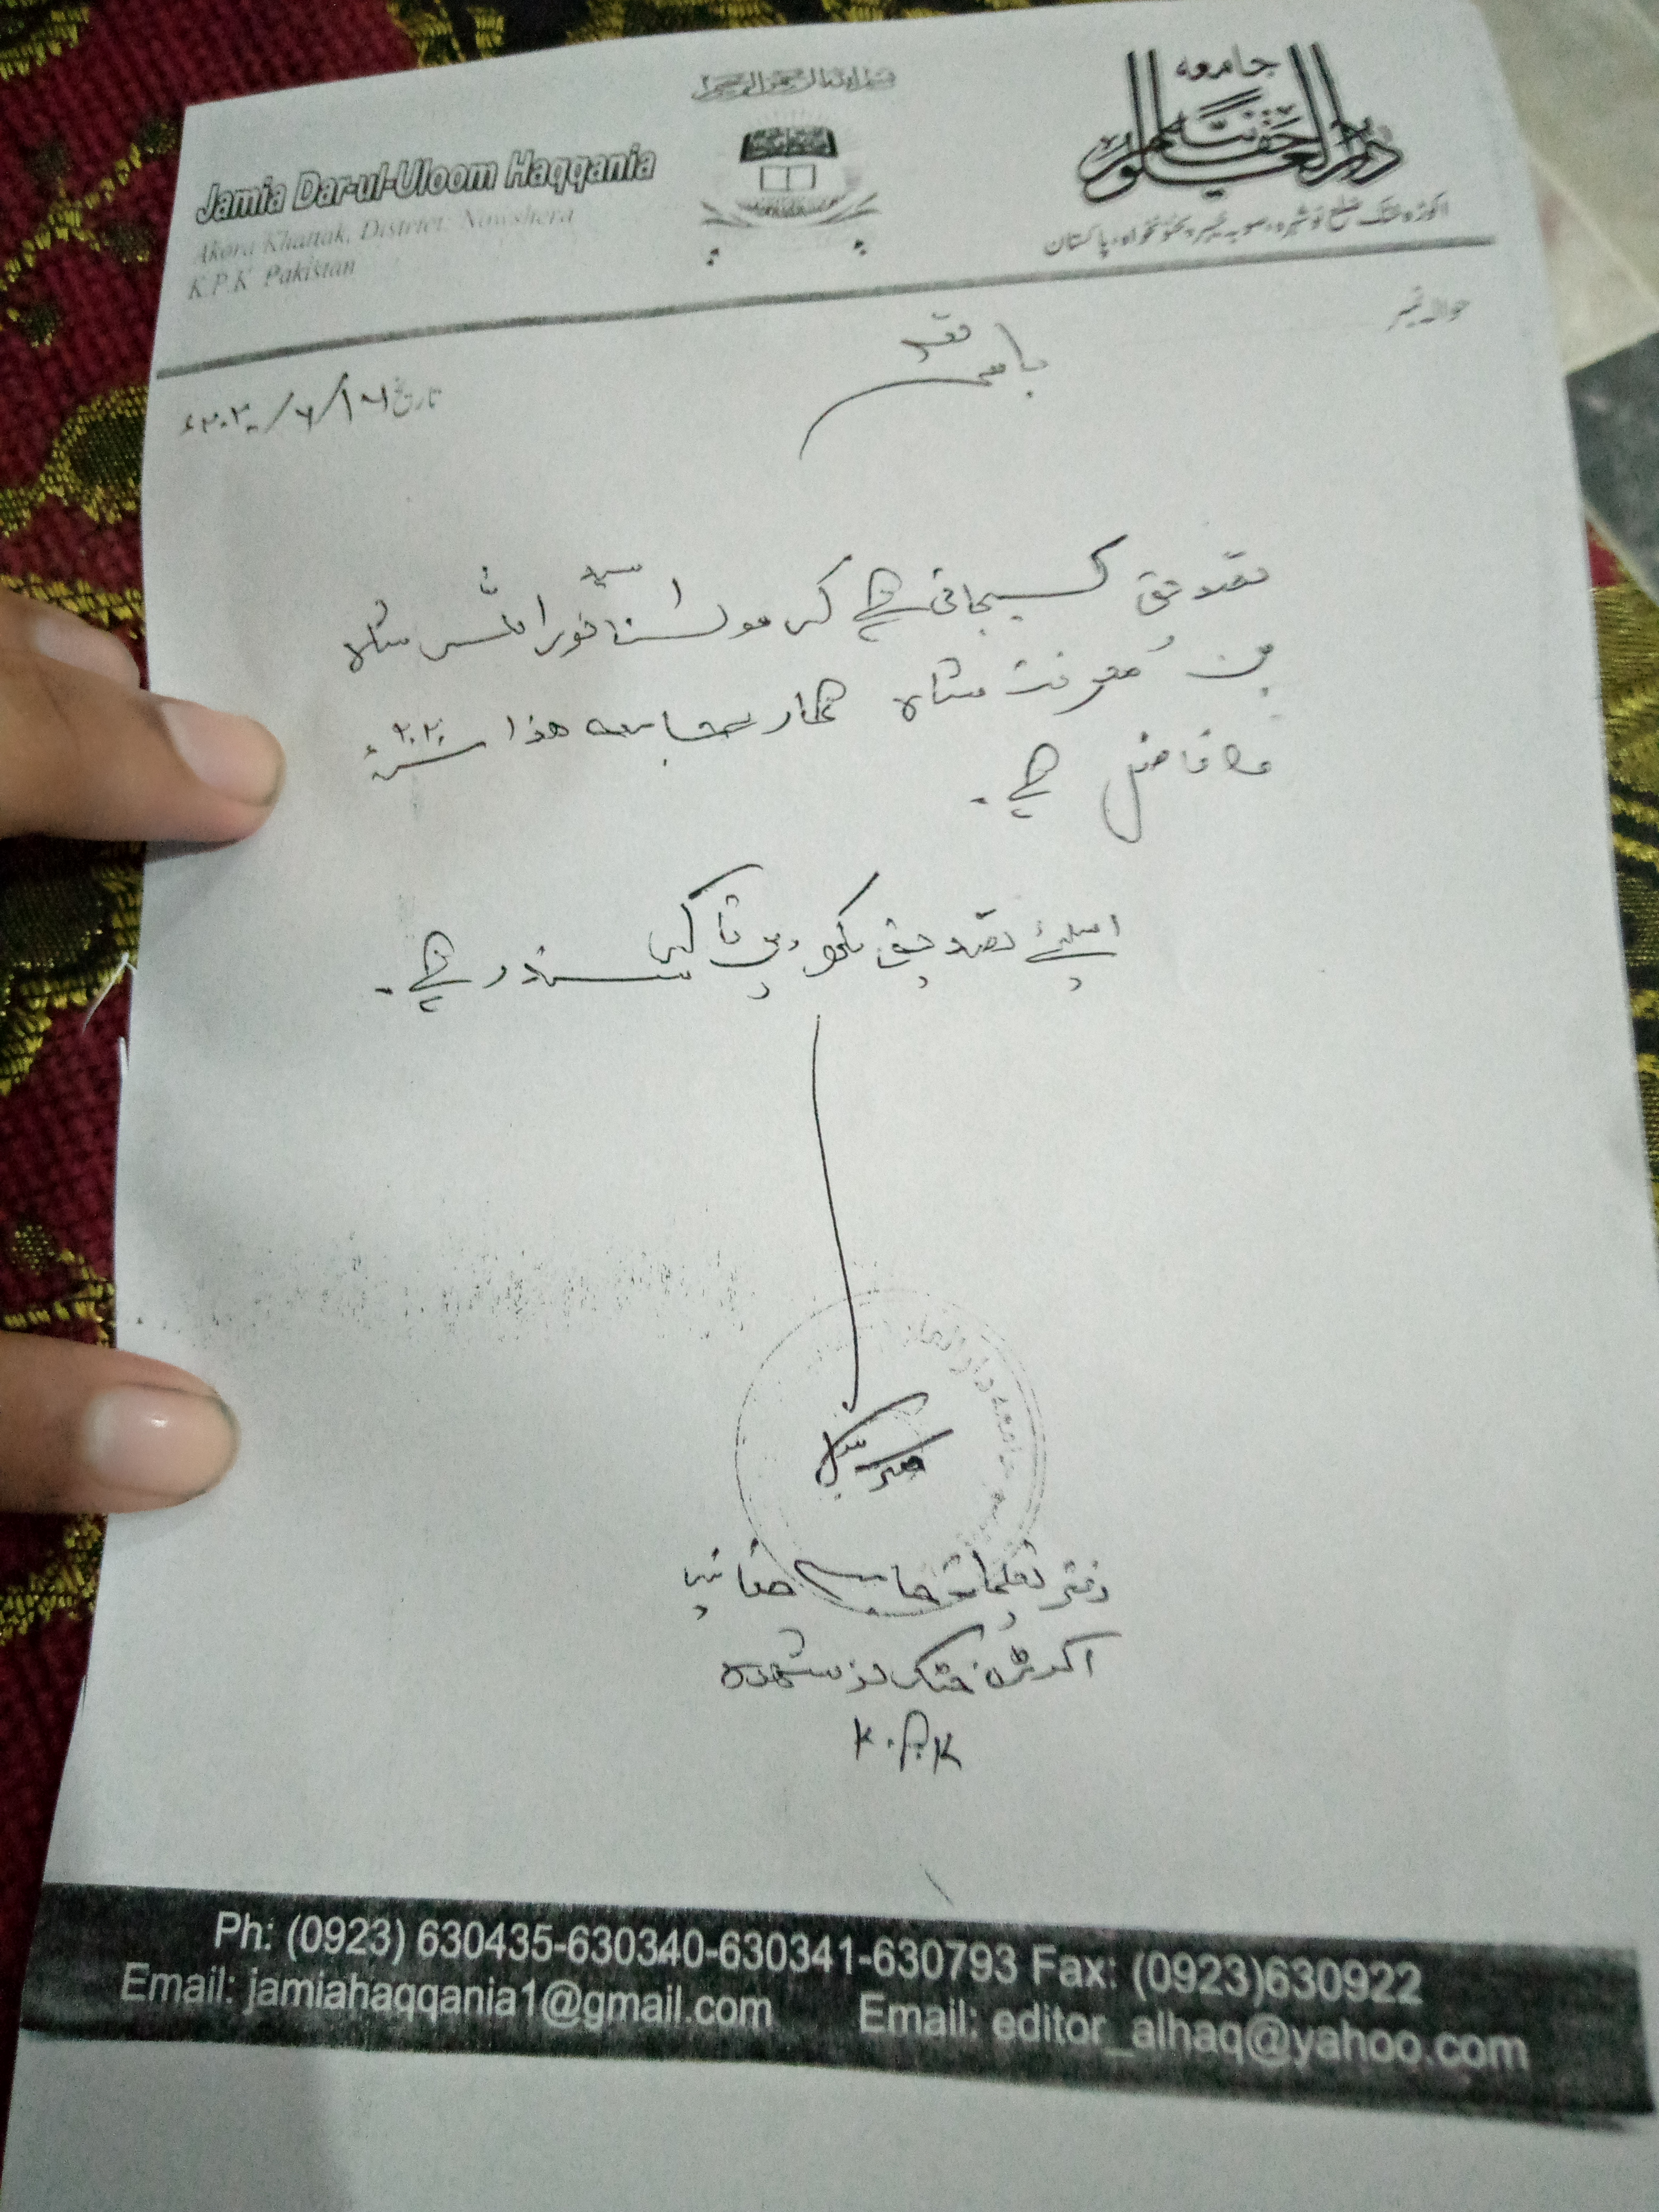 بسم اللہ الرحمن الرحیم
جامعہ
دارالعلوم حقانیہ
اکوڑہ خٹک ضلع نوشہرہ، صوبہ خیبر پختونخواہ، پاکستان
Jamia Dar-ul-Uloom Haqqania
Akora Khattak, District: Nowshera
K.P.K Pakistan
حوالہ نمبر
تاریخ ۱۶/۶/۲۰۲۰ء
باسمہ تعالیٰ
تصدیق کیجاتی ہے کہ مولانا سید نور شاہ
بن معرفت شاہ ہمارے جامعہ ھذا ۲۰۲۰ء
کا فاضل ہے۔
اسلئے تصدیق لکھ دی تاکہ سند رہے۔
دفتر تعلیمات جامعہ حقانیہ
اکوڑہ خٹک نوشہرہ
K.P.K
Ph: (0923) 630435-630340-630341-630793 Fax: (0923)630922
Email: jamiahaqqania1@gmail.com Email: editor_alhaq@yahoo.com